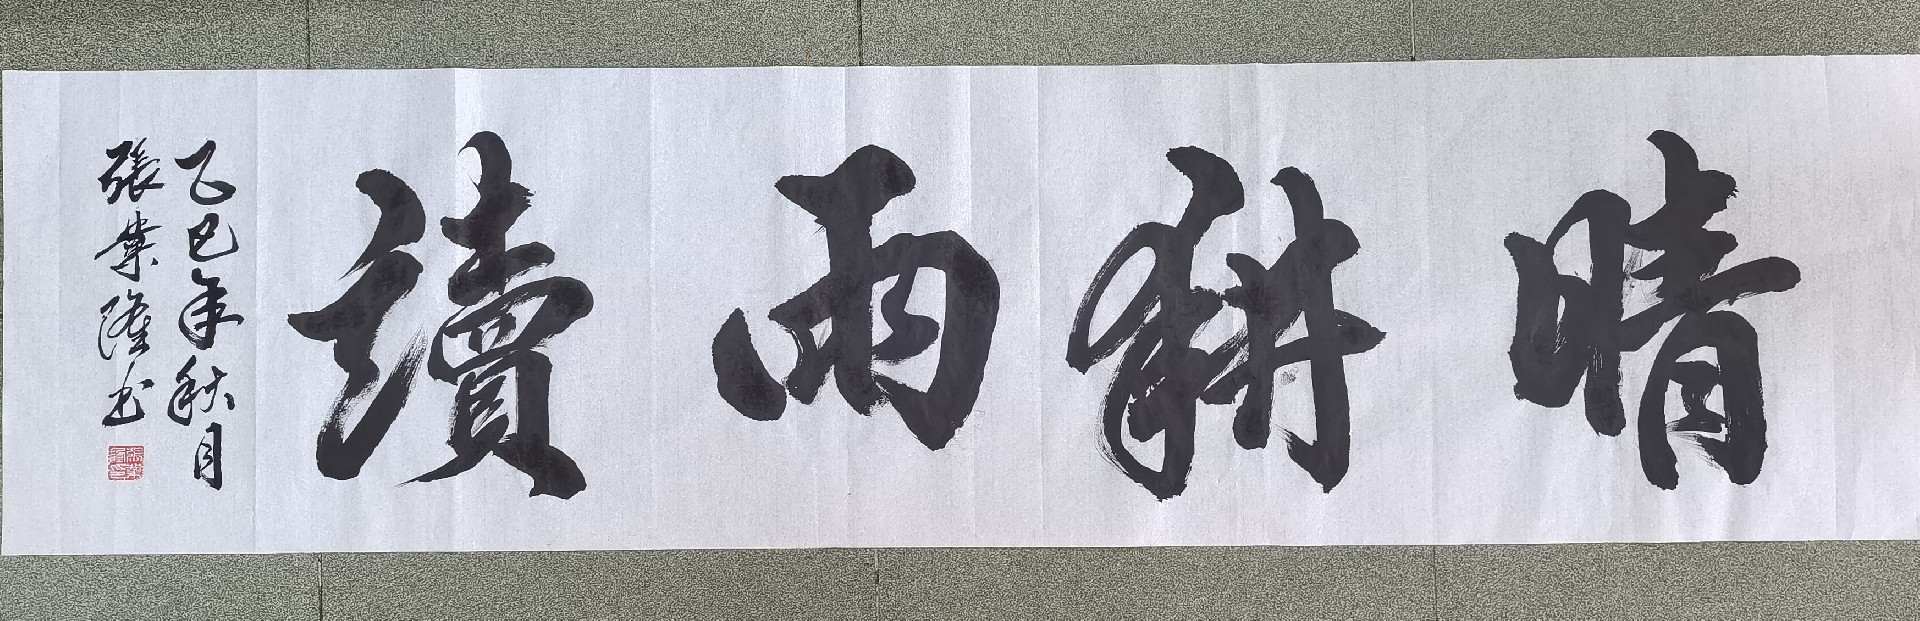 晴耕雨讀
乙巳年秋月
張業隆書